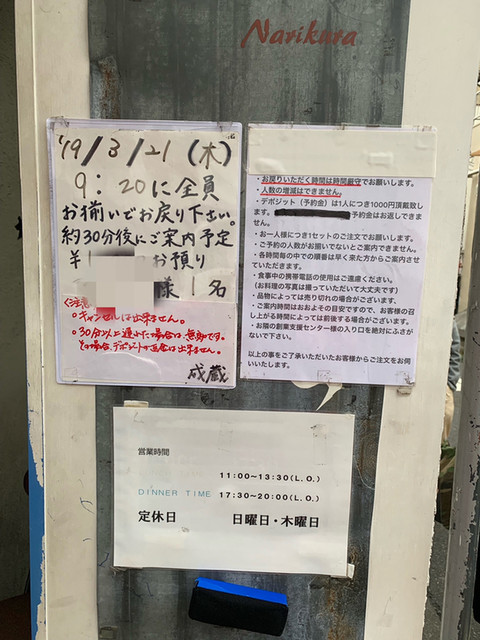 Narikura
'19/3/21(木)
9:20に全員
お揃いでお戻り下さい。
約30分後にご案内予定
¥1 お預り
様1名
ご注意
。キャンセルは出来ません。
。30分以上遅れた場合は無効です。
その場合、デポジットの返金は出来ません。
成蔵
・お戻りいただく時間は時間厳守でお願いします。
・人数の増減はできません。
・デポジット(予約金)は1人につき1000円頂戴致し
ます。 予約金はお返しできま
せん。
・お一人様につき1セットのご注文でお願します。
・ご予約の人数がお揃いでないとご案内できません。
・各時間毎の中での順番は早く来た方からご案内させ
ていただきます。
・食事中の携帯電話の使用はご遠慮ください。
(お料理の写真は撮っていただいて大丈夫です)
・品物によっては売り切れの場合がございます。
・ご案内時間はおおよその目安ですので、お客様の召
し上がる時間によっては前後する場合がございます。
・お隣の創業支援センター様の入り口を絶対にふさが
ないで下さい。
以上の事をご了承いただいたお客様からご注文をお伺
いいたします。
営業時間
11:00~13:30(L.O.)
DINNER TIME 17:30~20:00(L.O.)
定休日 日曜日・木曜日